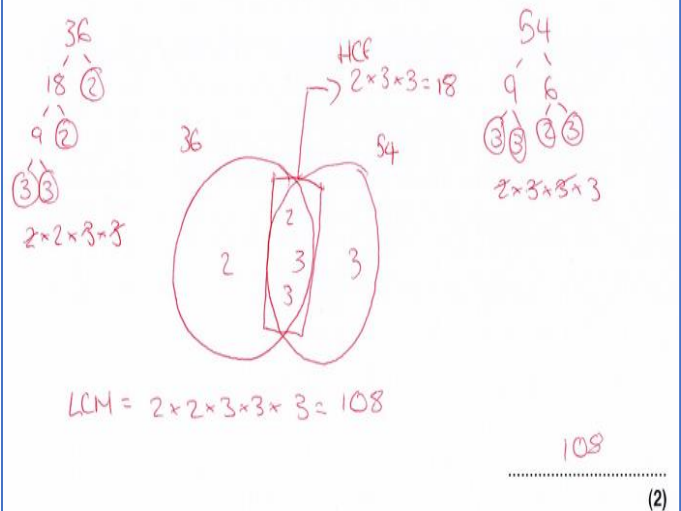 36
18 2
9 2
3 3
2×2×3×3
HCF
2×3×3=18
54
9 6
3 3 2 3
2×3×3×3
36
54
2
2
3
3
3
LCM = 2×2×3×3×3=108
108
(2)